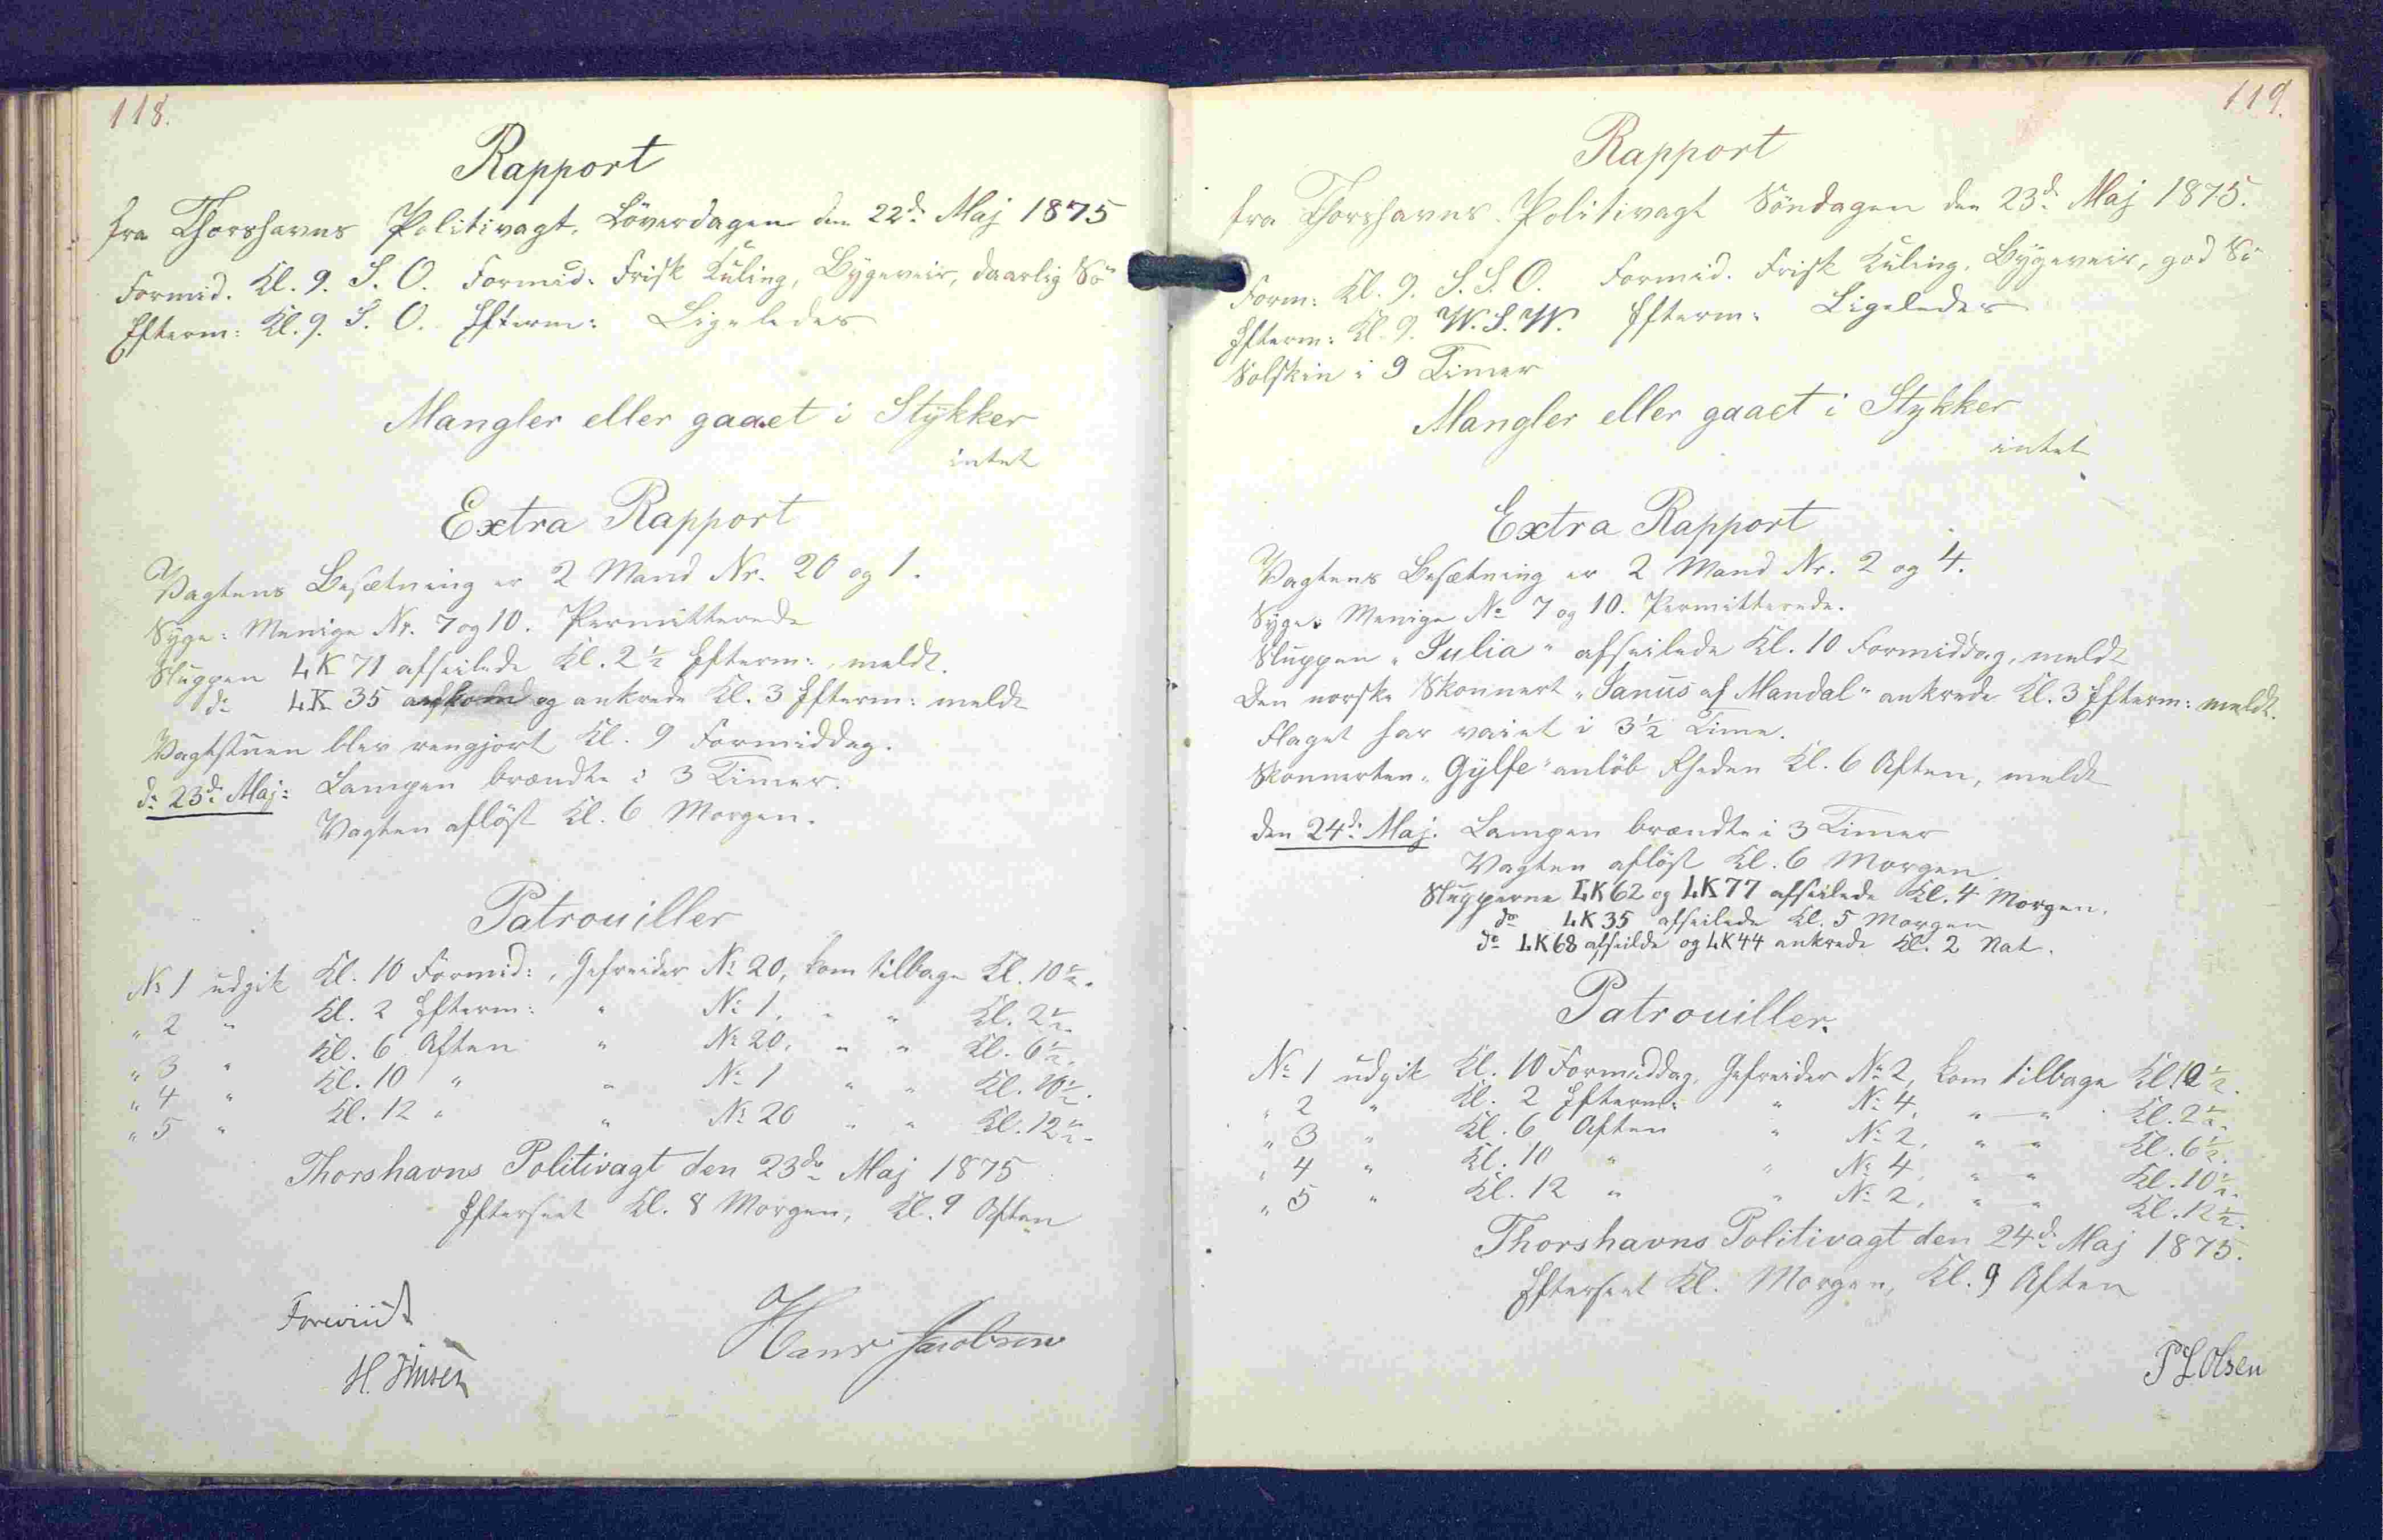 118.
Rapport
fra Thorshavns Politivagt, Löverdagen den 22d: Maj 1875
Formid. Kl. 9. S. O. Formid: Frisk Kuling, Bygeveir, daarlig Sö
Efterm: Kl. 9. S. O. Efterm: Ligeledes
Mangler eller gaaet i Stykker
intet
Extra Rapport
Vagtens Besætning er 2 Mand Nr. 20 og 1.
Syge: Menige Nr. 7 og 10. Permitterede
Sluppen LK 71 afseilede Kl. 2 1/2 Efterm:, meldt.
do LK 35 og ankrede Kl. 3 Efterm: meldt
Vagtstuen blev rengjort Kl. 9 Formiddag.
d: 23d: Maj: Lampen brændte i 3 Timer.
Vagten aflöst Kl. 6 Morgen.
Patrouiller
No 1 udgik Kl. 10 Formid:, Gefreider No 20, kom tilbage Kl. 10 1/2.
" 2 " Kl. 2 Efterm: " No 1, " " Kl. 2 1/2.
" 3 " Kl. 6 Aften " No 20, " " Kl. 6 1/2.
" 4 " Kl. 10 " " No 1 " " Kl. 10 1/2.
" 5 " Kl. 12 " " No 20 " " Kl. 12 1/2.
Thorshavns Politivagt den 23de Maj 1875
Efterseet Kl. 8 Morgen, Kl. 9 Aften
Foreviist
Hans Jacobsen
H.
119.
Rapport
fra Thorshavns Politivagt Söndagen den 23d: Maj 1875.
Form: Kl. 9. S.S.O. Formid. Frisk Kuling, Bygeveir, god Sö
Efterm: Kl. 9. W.S.W. Efterm: Ligeledes
Solskin i 9 Timer
Mangler eller gaaet i Stykker
intet
Extra Rapport
Vagtens Besætning er 2 Mand Nr. 2 og 4.
Syge: Menige No 7 og 10. Permitterede.
Sluppen "Julia" afseilede Kl. 10 Formiddag, meldt
Den norske Skonnert "Janus af Mandal" ankrede Kl. 3 Efterm: meldt.
Flaget har vaiet i 3 1/2 Time.
Skonnerten "Gylfe" anlöb Rheden Kl. 6 Aften, meldt
den 24d: Maj. Lampen brændte i 3 Timer
Vagten aflöst Kl. 6 Morgen.
Slupperne LK 62 og LK 77 afseilede Kl. 4 Morgen.
do LK 35 afseilede Kl. 5 Morgen
do LK 68 afseilde og LK 44 ankrede Kl. 2 Nat.
Patrouiller.
No 1 udgik Kl. 10 Formiddag, Gefreider No 2, kom tilbage Kl 10 1/2.
" 2 " Kl. 2 Efterm: " No 4, " " Kl. 2 1/2.
" 3 " Kl. 6 Aften " No 2, " " Kl. 6 1/2.
" 4 " Kl. 10 " " No 4, " " Kl. 10 1/2.
" 5 " Kl. 12 " " No 2, " " Kl. 12 1/2.
Thorshavns Politivagt den 24d: Maj 1875.
Efterseet Kl. Morgen, Kl. 9 Aften
P L Olsen